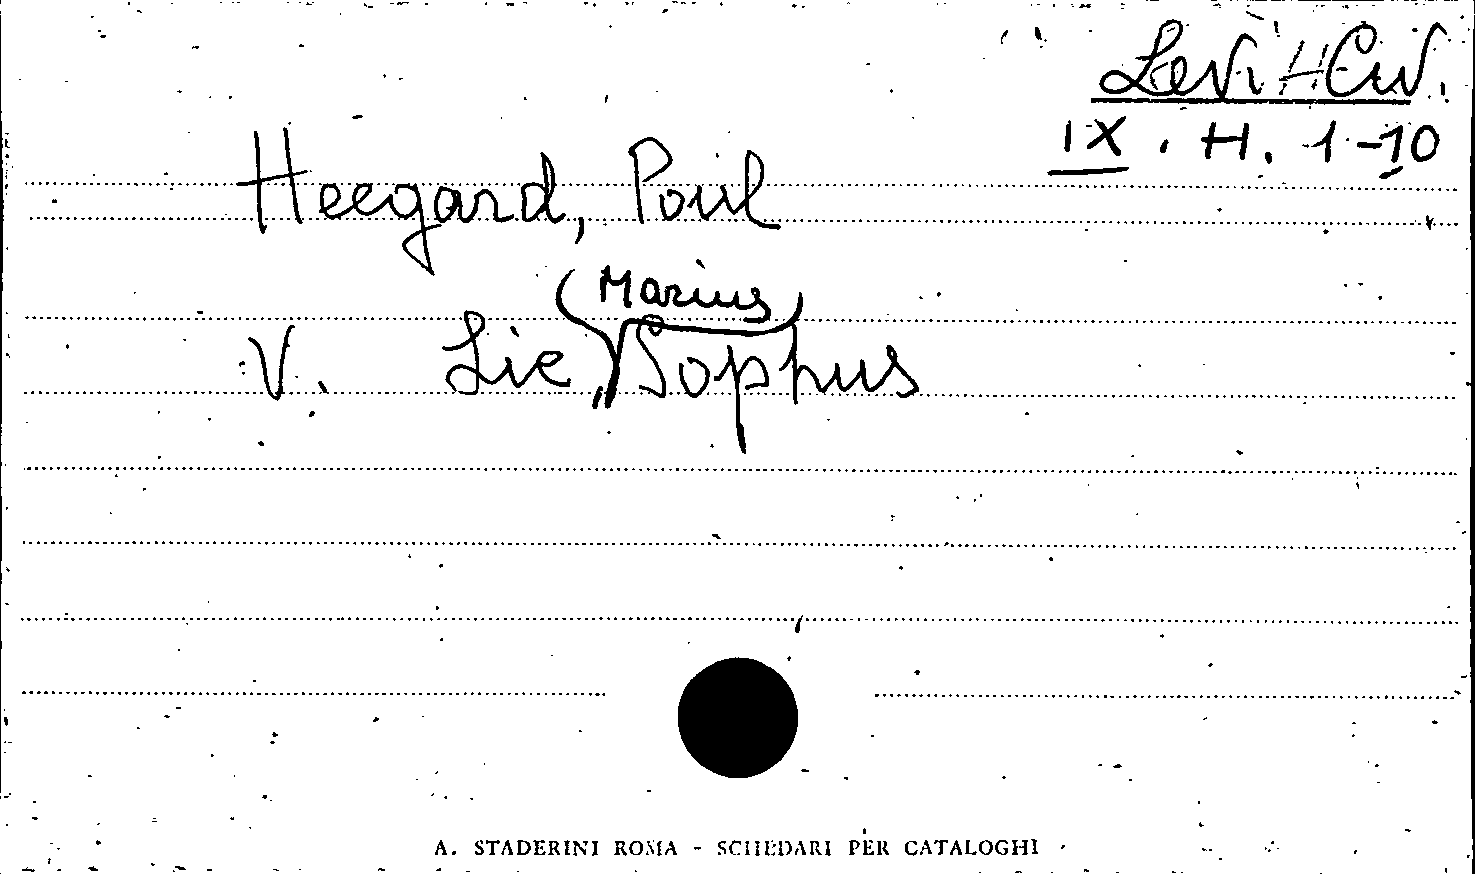 Levi-Civ.
IX. H. 1-10
Heegard, Poul
(Marius)
V. Lie, Sophus
A. STADERINI ROMA - SCHEDARI PER CATALOGHI